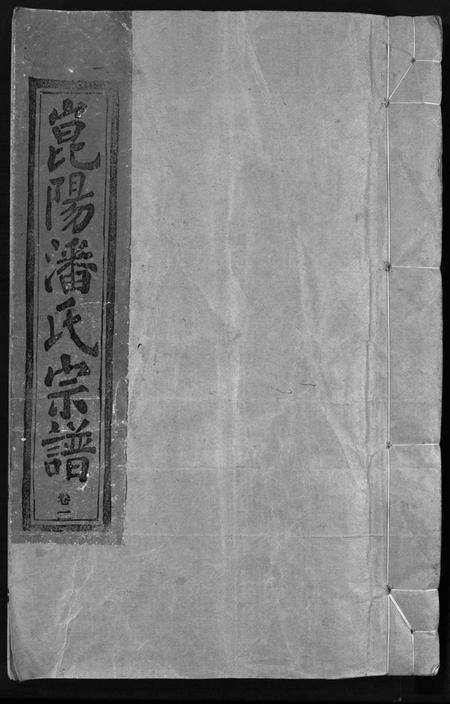 崑陽潘氏宗譜
卷二